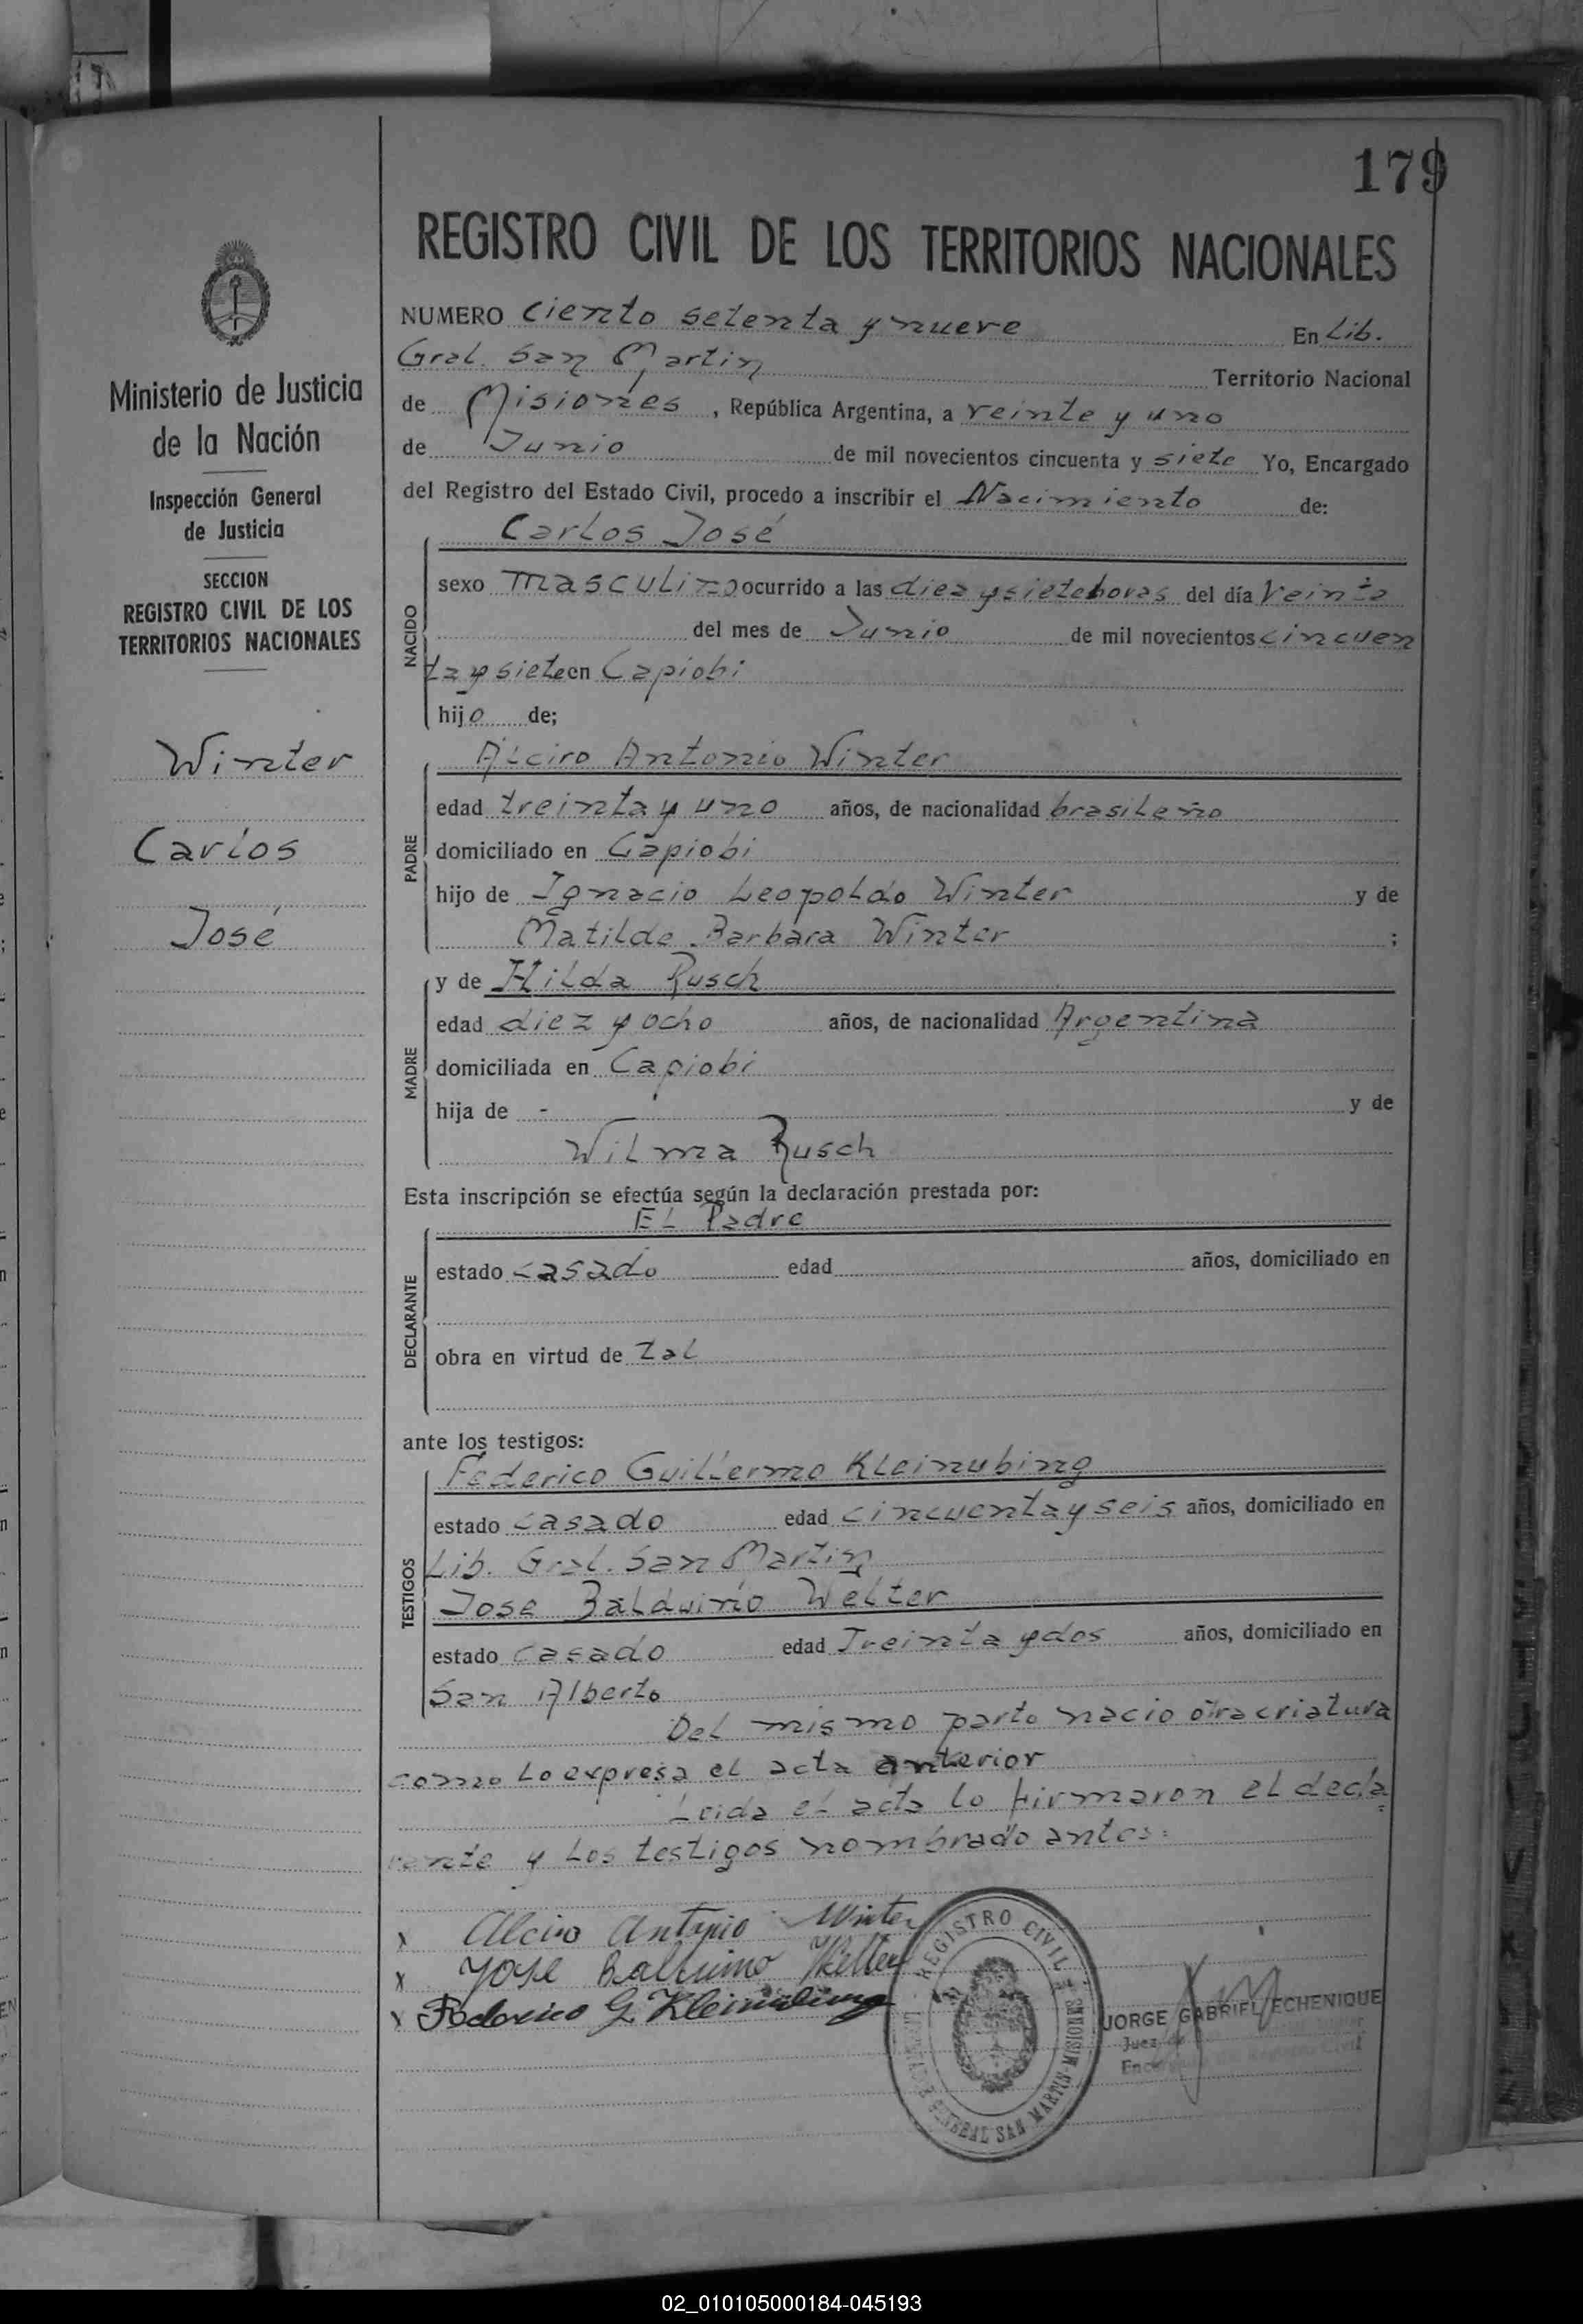 179
REGISTRO CIVIL DE LOS TERRITORIOS NACIONALES
NUMERO Ciento setenta y nueve En Lib.
Gral. San Martin Territorio Nacional
de Misiones , República Argentina, a veinte y uno
de Junio de mil novecientos cincuenta y siete Yo, Encargado
del Registro del Estado Civil, procedo a inscribir el Nacimiento de:
Carlos José
NACIDO
sexo masculino ocurrido a las diez y siete horas del día Veinte
del mes de Junio de mil novecientos cincuen
ta y siete en Capiobi
hijo de;
Ministerio de Justicia
de la Nación
Inspección General
de Justicia
SECCION
REGISTRO CIVIL DE LOS
TERRITORIOS NACIONALES
Winter
Carlos
José
PADRE
Alciro Antonio Winter
edad treinta y uno años, de nacionalidad brasileño
domiciliado en Capiobi
hijo de Ignacio Leopoldo Winter y de
Matilde Barbara Winter ;
MADRE
y de Hilda Rusch
edad diez y ocho años, de nacionalidad Argentina
domiciliada en Capiobi
hija de - y de
Wilma Rusch
Esta inscripción se efectúa según la declaración prestada por:
DECLARANTE
El Padre
estado casado edad años, domiciliado en
obra en virtud de tal
ante los testigos:
TESTIGOS
Federico Guillermo Kleinubing
estado casado edad cincuenta y seis años, domiciliado en
Lib. Gral. San Martin
Jose Balduino Welter
estado casado edad Treinta y dos años, domiciliado en
San Alberto
Del mismo parto nacio otra criatura
como lo expresa el acta anterior
Leida el acta lo firmaron el decla
rante y los testigos nombrado antes:
x Alciro Antonio Winter
x José Balduino Welter
x Federico G. Kleinubing
REGISTRO CIVIL
GENERAL SAN MARTIN-MISIONES
JORGE GABRIEL ECHENIQUE
Juez de
02_010105000184-045193